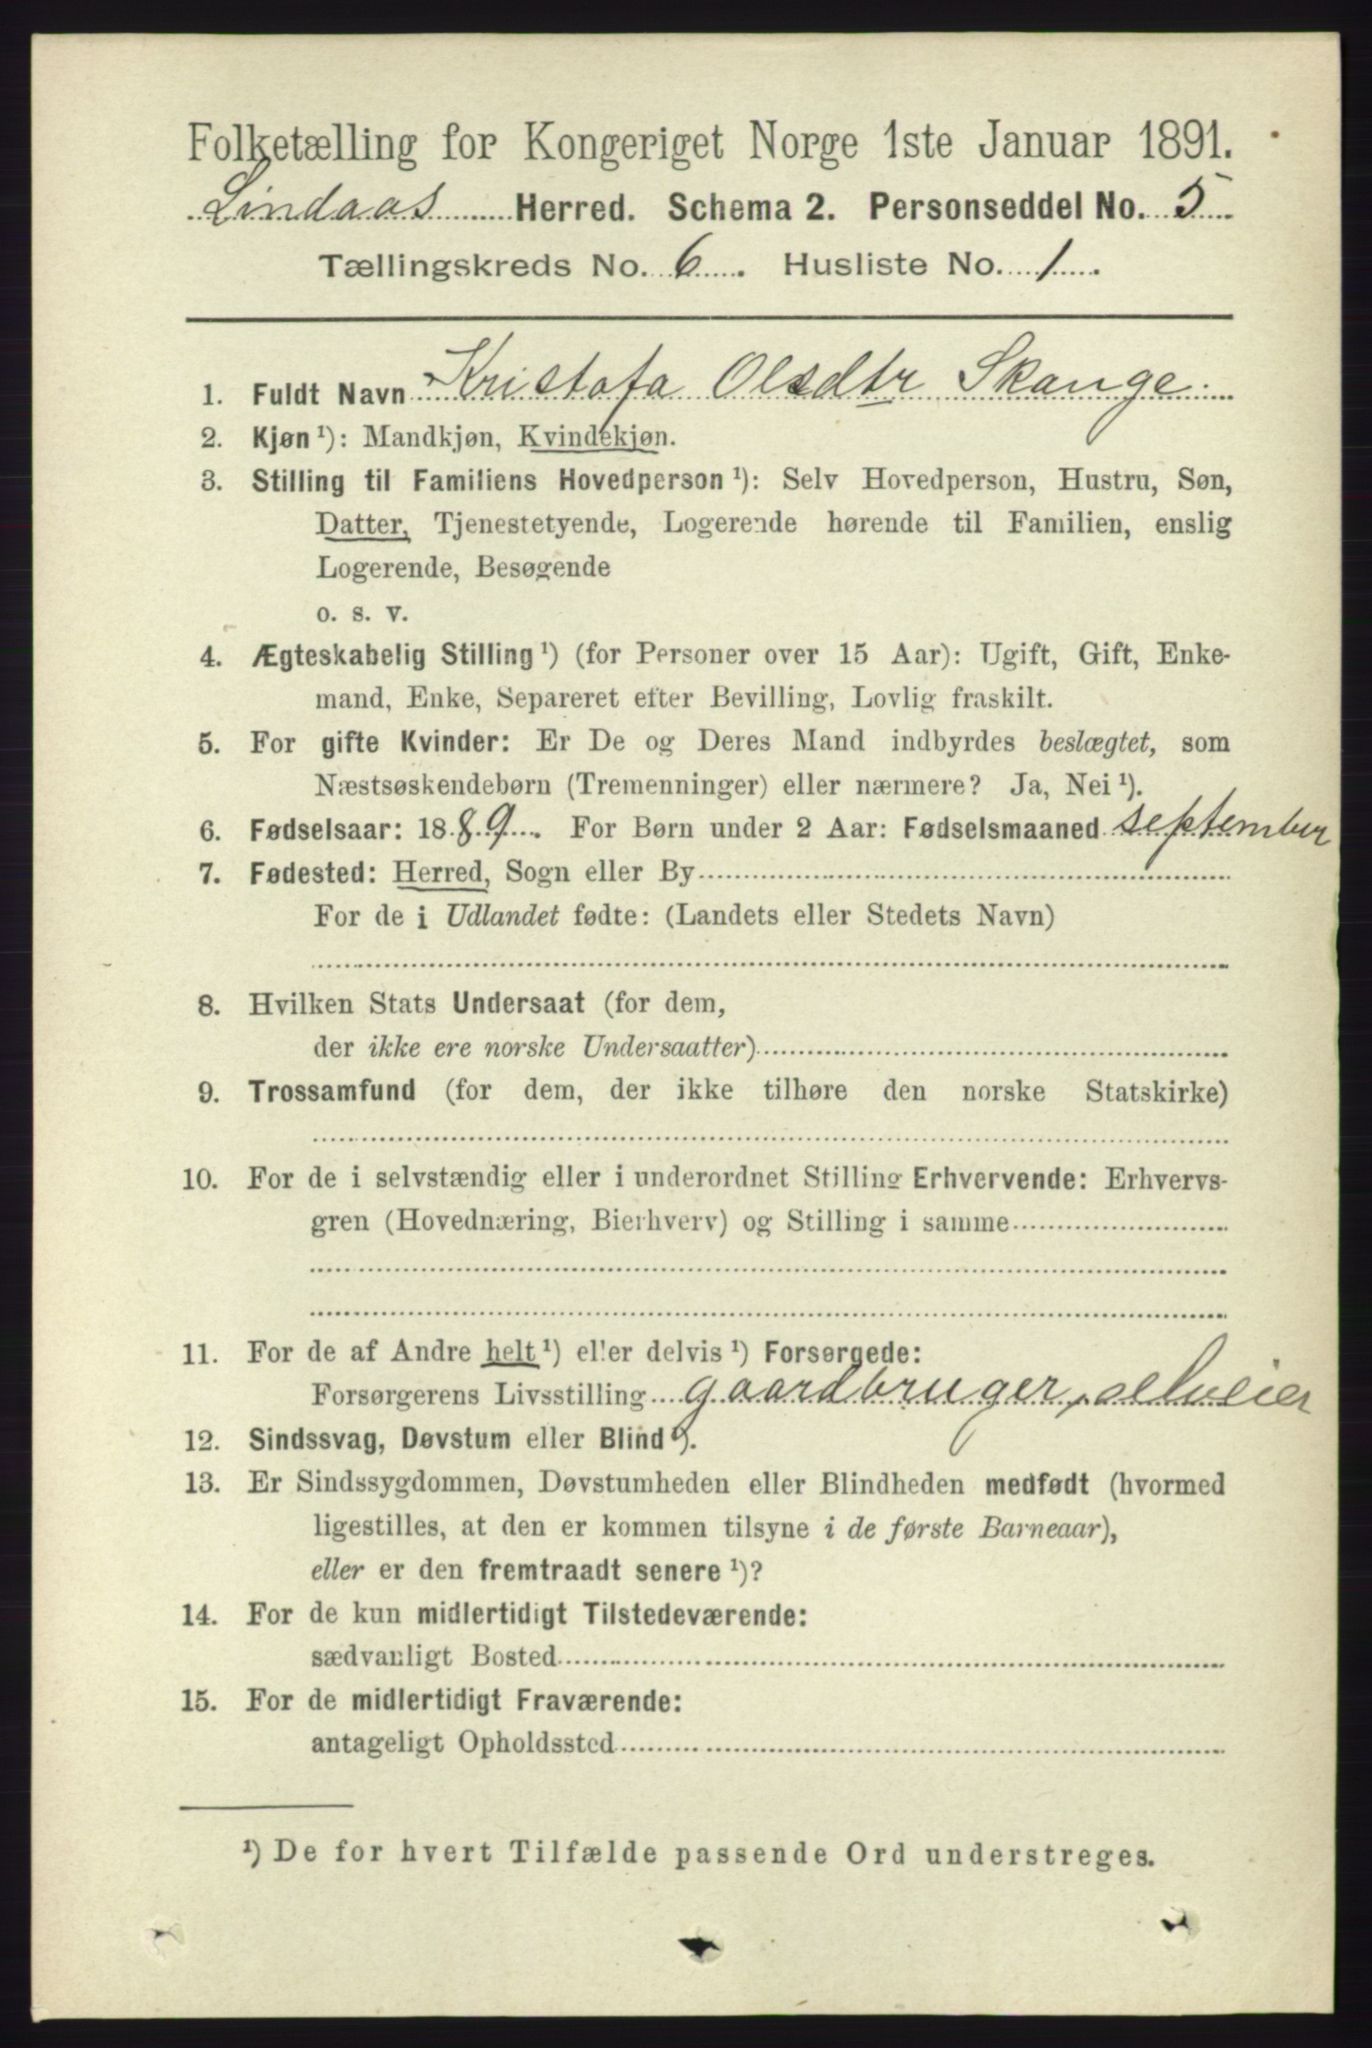 Folketælling for Kongeriget Norge 1ste Januar 1891.
Lindaas Herred. Schema 2. Personseddel No. 5
Tællingskreds No. 6. Husliste No. 1
1. Fuldt Navn Kristofa Olsdtr Skauge.
2. Kjøn ¹): Mandkjøn, Kvindekjøn.
3. Stilling til Familiens Hovedperson ¹): Selv Hovedperson, Hustru, Søn,
Datter, Tjenestetyende, Logerende hørende til Familien, enslig
Logerende, Besøgende
o. s. v.
4. Ægteskabelig Stilling ¹) (for Personer over 15 Aar): Ugift, Gift, Enke-
mand, Enke, Separeret efter Bevilling, Lovlig fraskilt.
5. For gifte Kvinder: Er De og Deres Mand indbyrdes beslægtet, som
Næstsøskendebørn (Tremenninger) eller nærmere? Ja, Nei ¹).
6. Fødselsaar: 1889. For Børn under 2 Aar: Fødselsmaaned september
7. Fødested: Herred, Sogn eller By
For de i Udlandet fødte: (Landets eller Stedets Navn)
8. Hvilken Stats Undersaat (for dem,
der ikke ere norske Undersaatter)
9. Trossamfund (for dem, der ikke tilhøre den norske Statskirke)
10. For de i selvstændig eller i underordnet Stilling Erhvervende: Erhvervs-
gren (Hovednæring, Bierhverv) og Stilling i samme
11. For de af Andre helt ¹) eller delvis ¹) Forsørgede:
Forsørgerens Livsstilling gaardbruger, selveier
12. Sindssvag, Døvstum eller Blind ¹).
13. Er Sindssygdommen, Døvstumheden eller Blindheden medfødt (hvormed
ligestilles, at den er kommen tilsyne i de første Barneaar),
eller er den fremtraadt senere ¹)?
14. For de kun midlertidigt Tilstedeværende:
sædvanligt Bosted
15. For de midlertidigt Fraværende:
antageligt Opholdssted
¹) De for hvert Tilfælde passende Ord understreges.